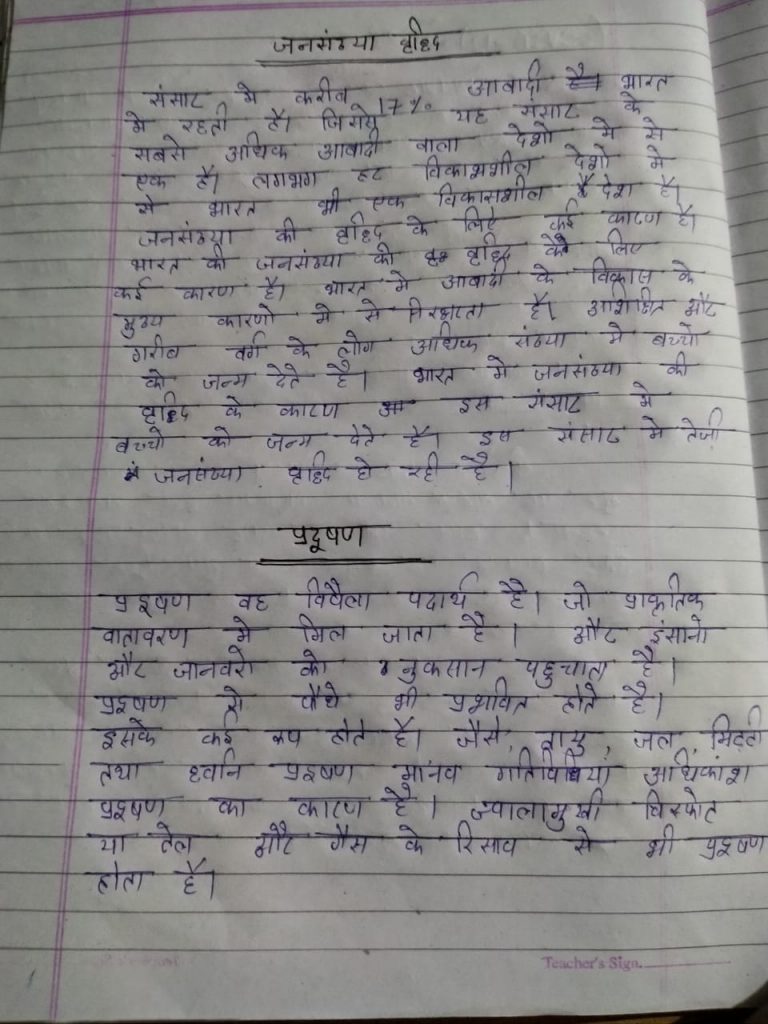 जनसंख्या वृध्दि
संसार मे करीब 17% आबादी है भारत
मे रहती है। जिससे यह संसार के
सबसे अधिक आबादी वाला देशो मे से
एक है। लगभग हर विकाशशील देशो मे
से भारत भी एक विकासशील देश है।
जनसंख्या की वृध्दि के लिए कई कारण है।
भारत की जनसंख्या की वृध्दि के लिए
कई कारण है। भारत मे आबादी के विकास के
मुख्य कारणो मे से निरक्षरता है। अशिक्षित और
गरीब वर्ग के लोग अधिक संख्या मे बच्चो
को जन्म देते है। भारत मे जनसंख्या की
वृध्दि के कारण इस संसार मे
बच्चो को जन्म देते है। इस संसार मे तेजी
से जनसंख्या वृध्दि हो रही है।
प्रदूषण
प्रदूषण वह विषैला पदार्थ है। जो प्राकृतिक
वातावरण मे मिल जाता है। और इंसानो
और जानवरो को नुकसान पहुचाता है।
प्रदूषण से पौधे भी प्रभवित होते है।
इसके कई रूप होते है। जैसे, वायु, जल, मिट्टी
तथा ध्वनि प्रदूषण मानव गतिविधियां अधिकांश
प्रदूषण का कारण है। ज्वालामुखी विस्फोट
या तेल और गैस के रिसाव से भी प्रदूषण
होता है।
Teacher's Sign.